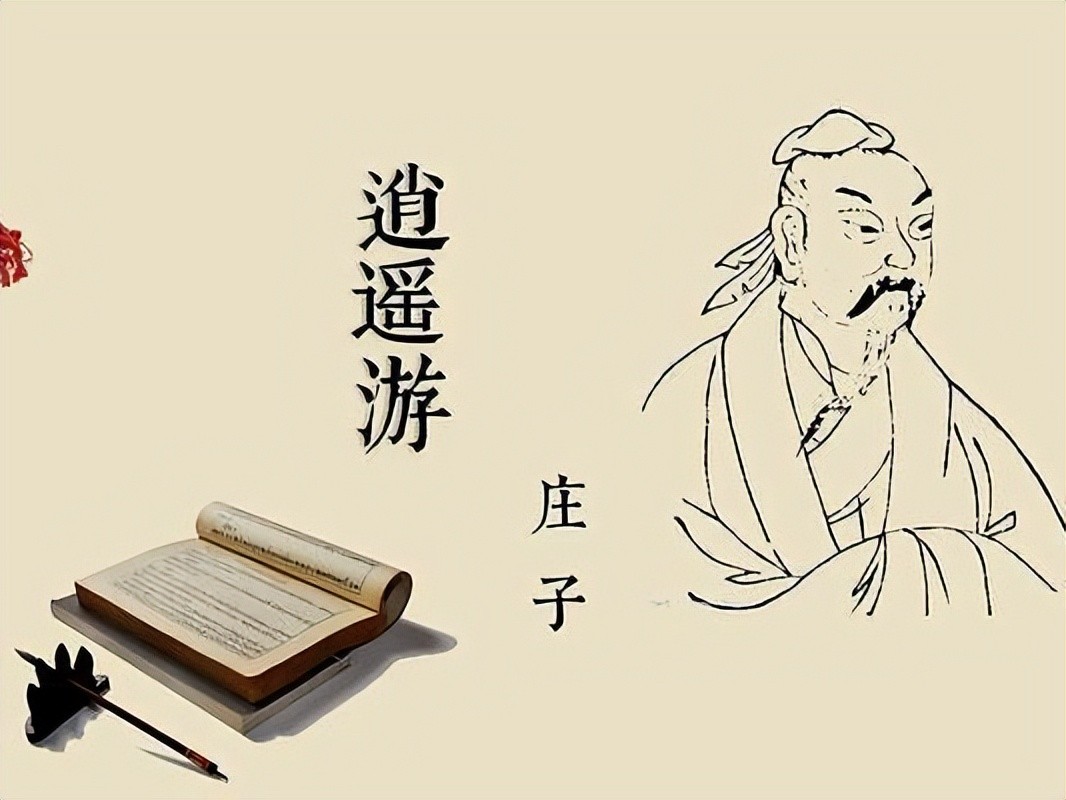 逍遥游
庄子